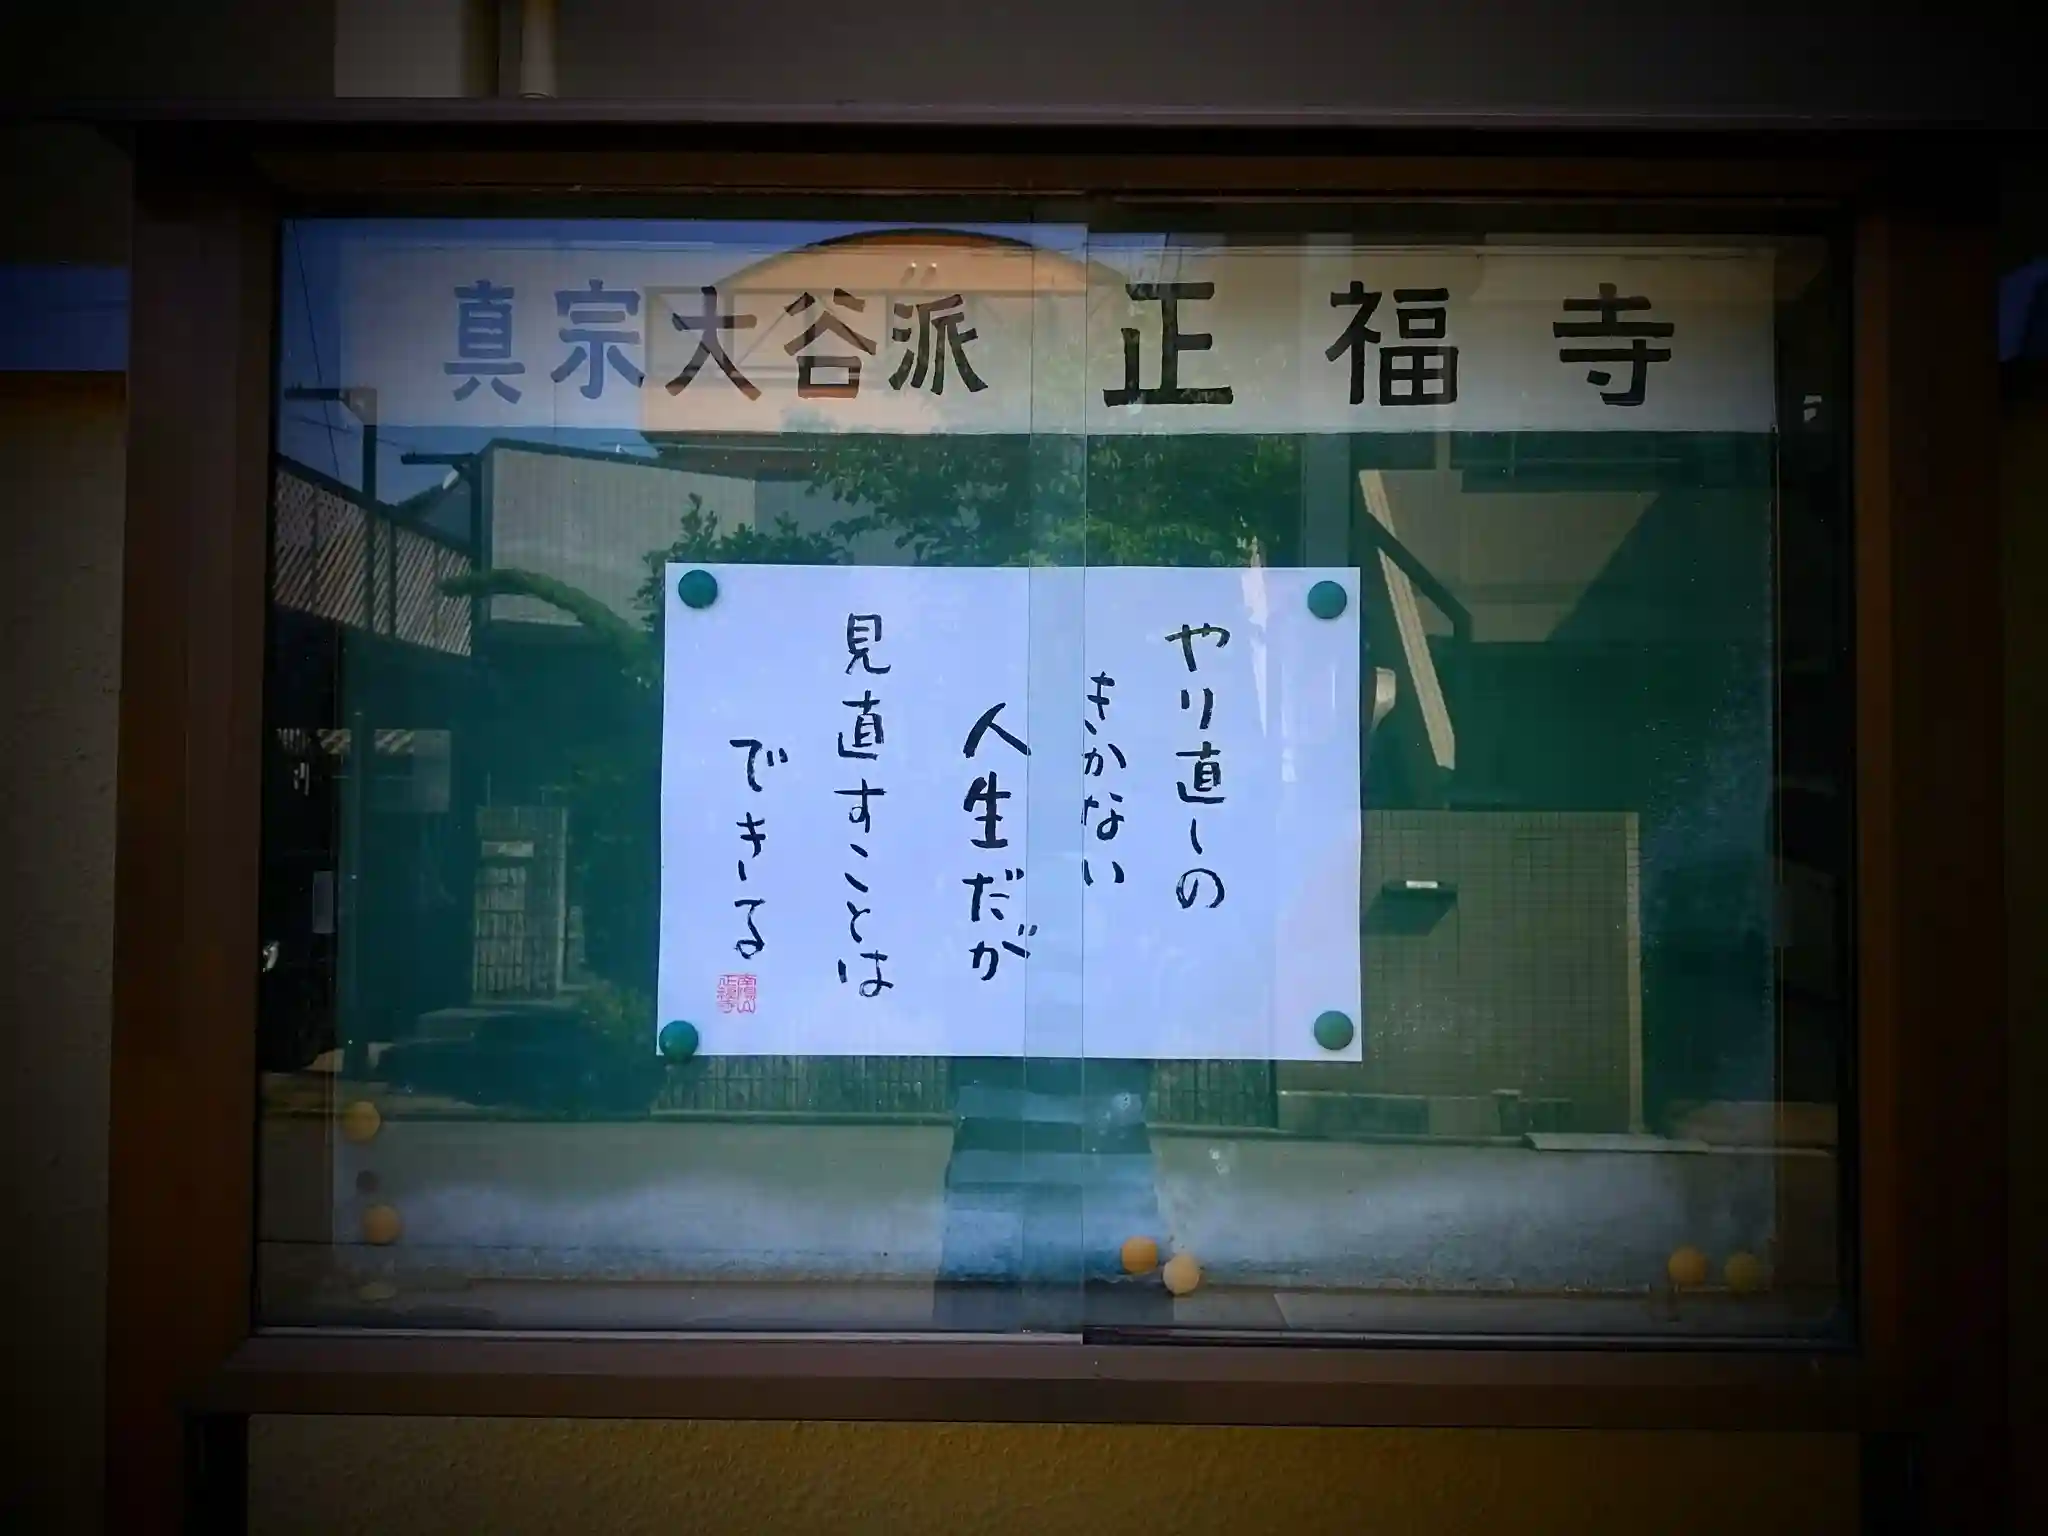 真宗大谷派 正福寺
やり直しの
きかない
人生だが
見直すことは
できる
正福寺